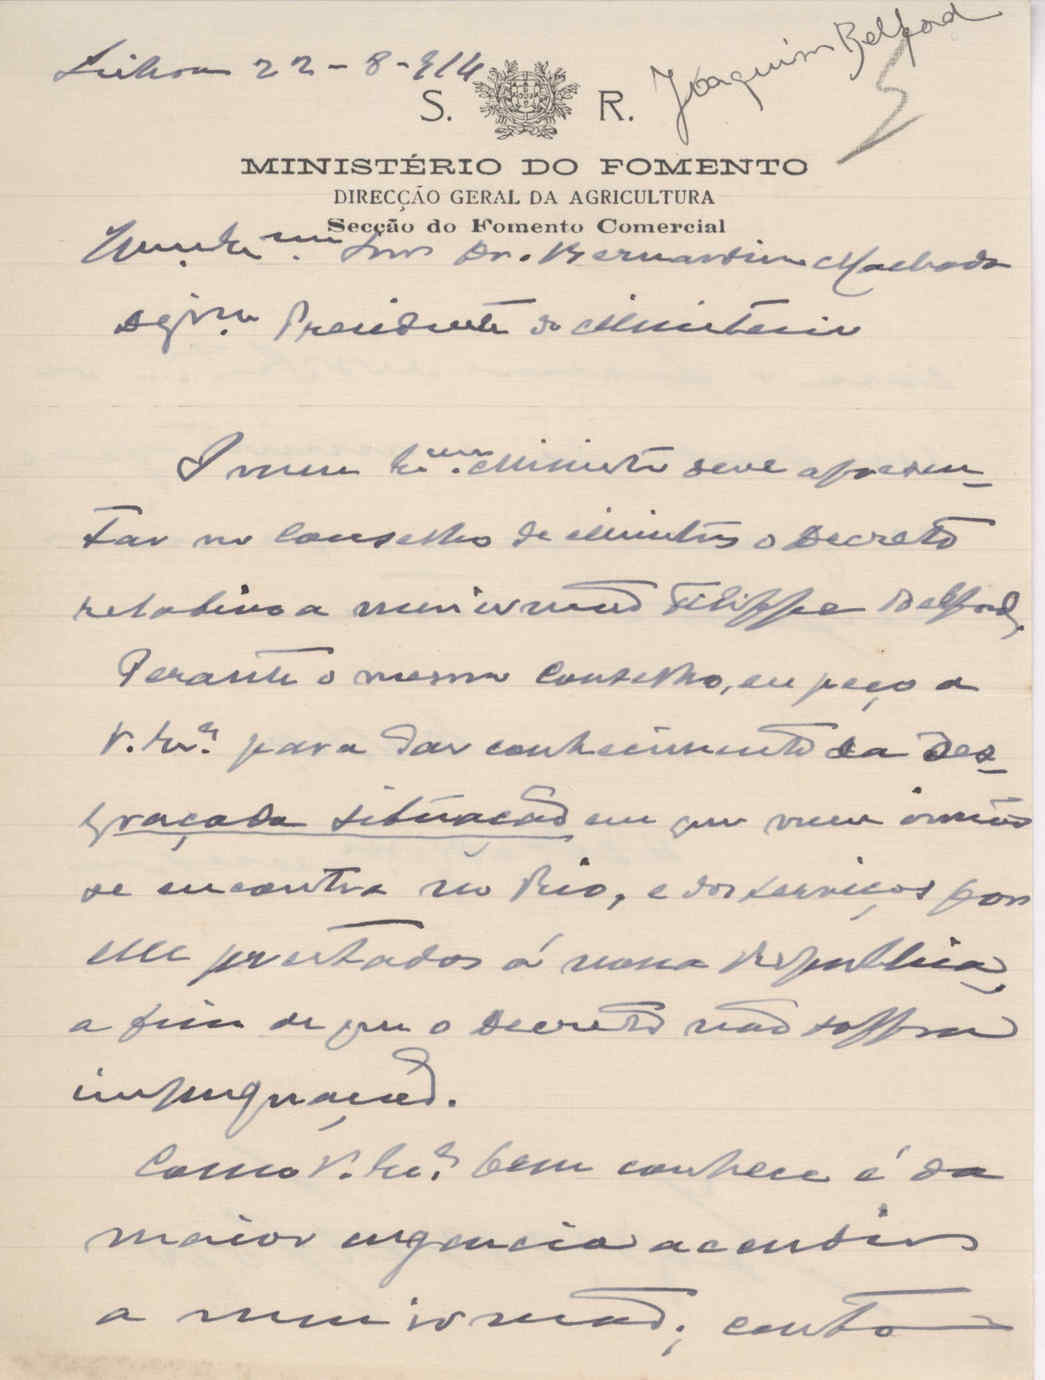 Lisboa 22-8-914
Joaquim Belford
S. R.
MINISTÉRIO DO FOMENTO
DIRECÇÃO GERAL DA AGRICULTURA
Secção do Fomento Comercial
Snr. Dr. Bernardino Machado
Dgmo. Presidente do Ministerio
O meu Exmo. Ministro deve apresen-
tar no Conselho de Ministros o Decreto
relativo a meu irmão Filippe Belford,
Perante o mesmo Conselho, eu peço a
V. Exa. para dar conhecimento da des-
graçada situação em que meu irmão
se encontra no Rio, e dos serviços por
elle prestados á nossa Republica,
a fim de que o Decreto não soffra
impugnação.
Como V. Exa. bem conhece é da
maior urgencia acendir
a meu irmão; conto